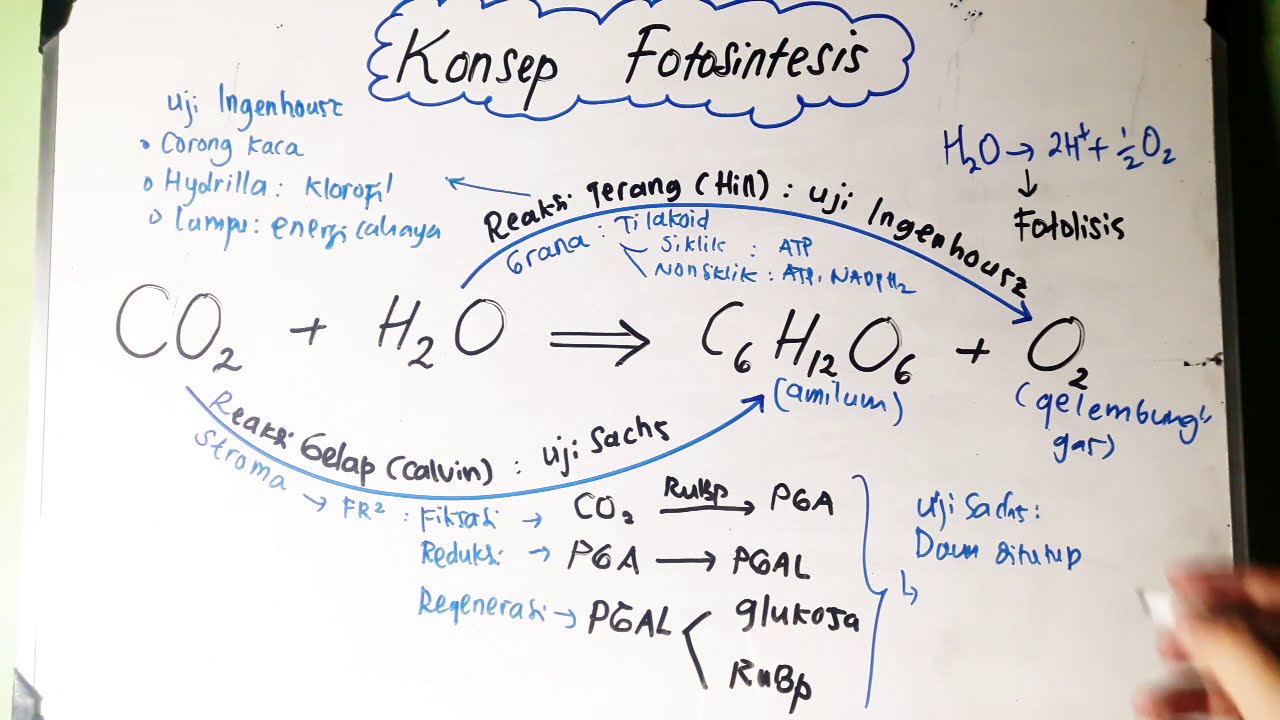 Konsep Fotosintesis
uji Ingenhousz
• Corong kaca
• Hydrilla: klorofil
• Lampu: energi cahaya
H₂O → 2H⁺ + ½O₂
↓
Fotolisis
Reaksi Terang (Hill) : uji Ingenhousz
Grana : Tilakoid
Siklik : ATP
Nonsiklik : ATP, NADPH₂
CO₂ + H₂O ⇒ C₆H₁₂O₆ + O₂
(amilum)
(gelembung"
gas)
Reaksi Gelap (calvin) : uji Sachs
Stroma → FR² : Fiksasi → CO₂ RuBp → PGA
Reduksi → PGA → PGAL
Regenerasi → PGAL < glukosa
RuBp
Uji Sachs:
Daun ditutup
↳